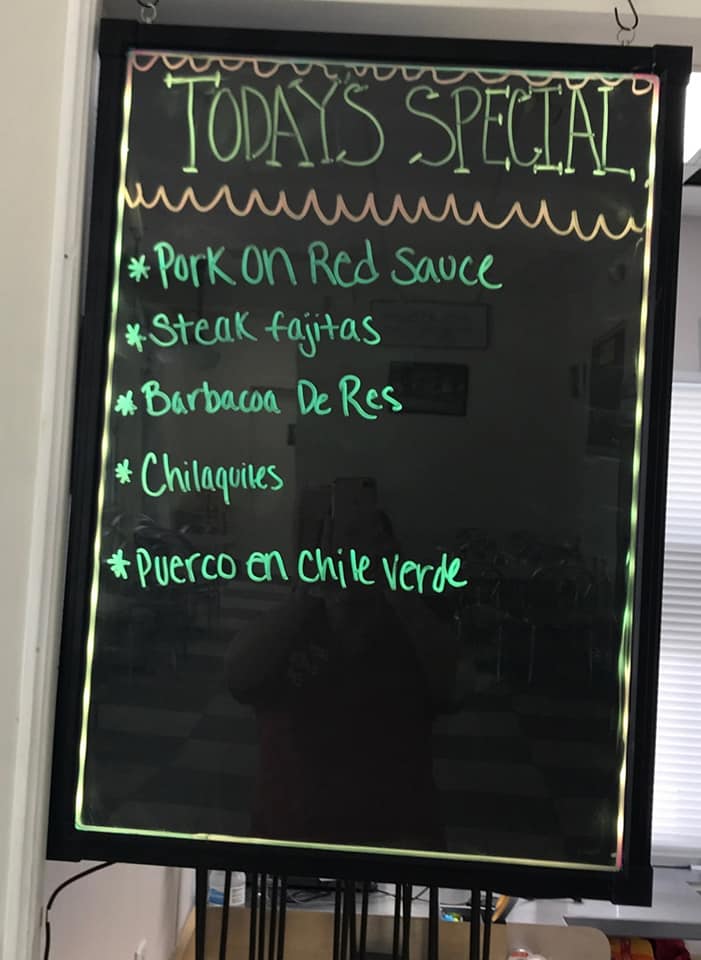 TODAY'S SPECIAL
* Pork on Red Sauce
* Steak fajitas
* Barbacoa De Res
* Chilaquiles
* Puerco en chile verde